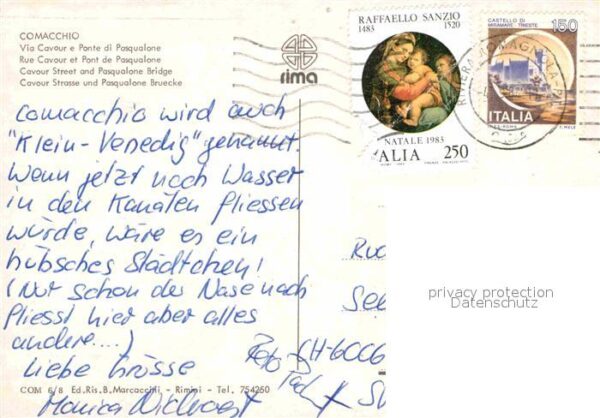 COMACCHIO
Via Cavour e Ponte di Pasqualone
Rue Cavour et Pont de Pasqualone
Cavour Street and Pasqualone Bridge
Cavour Strasse und Pasqualone Bruecke
rima
RAFFAELLO SANZIO
1483 1520
NATALE 1983
ITALIA 250
CASTELLO DI
MIRAMARE TRIESTE
150
ITALIA
Comacchio wird auch
"Klein-Venedig" genannt.
Wenn jetzt noch Wasser
in den Kanälen fliessen
würde, wäre es ein
hübsches Städtchen!
(Nur schon der Nase nach
fliesst hier aber alles
andere....)
Liebe Grüsse
Monica
CH-6006
See
privacy protection
Datenschutz
COM 6/8 Ed.Ris.B.Marcacchili - Rimini - Tel. 754250